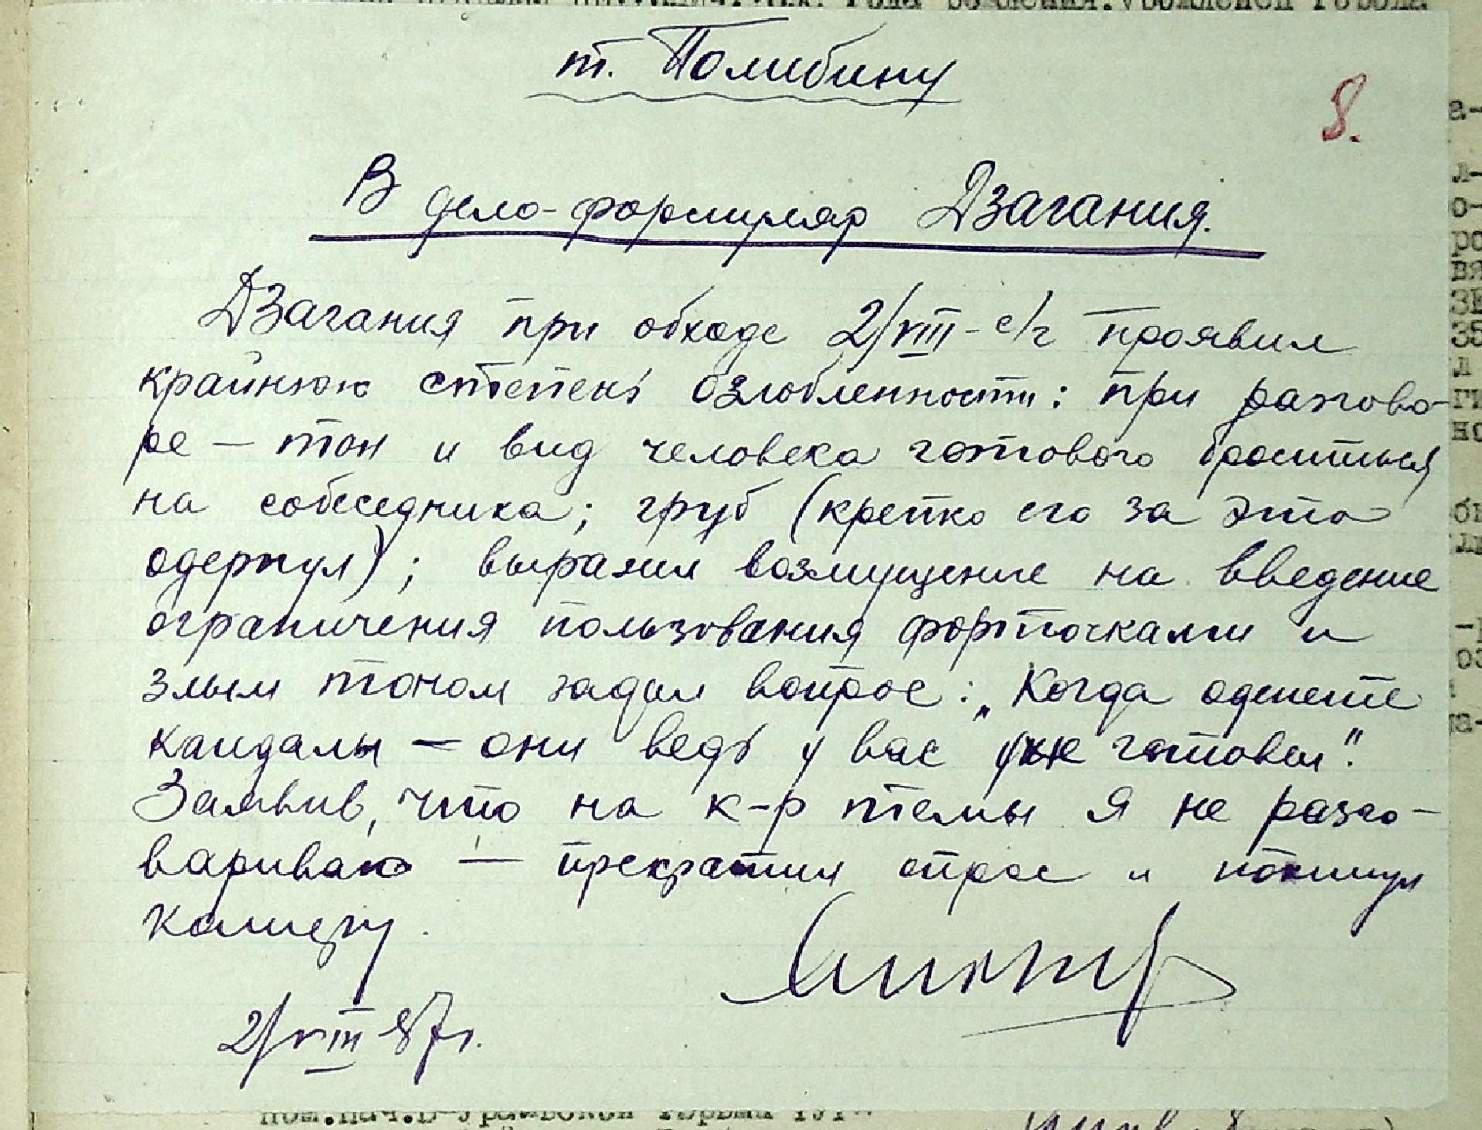 т. Полибину
8.
В дело-формуляр Дзагания.
Дзагания при обходе 2/VIII-с/г проявил
крайнюю степень озлобленности: при разгово-
ре — тон и вид человека готового броситься
на собеседника; груб (крепко его за это
одернул); выразил возмущение на введение
ограничения пользования форточками и
злым тоном задал вопрос: „Когда оденете
кандалы — они ведь у вас уже готовы".
Заявив, что на к-р темы я не разго-
вариваю — прекратил опрос и покинул
камеру.
2/VIII 37г.